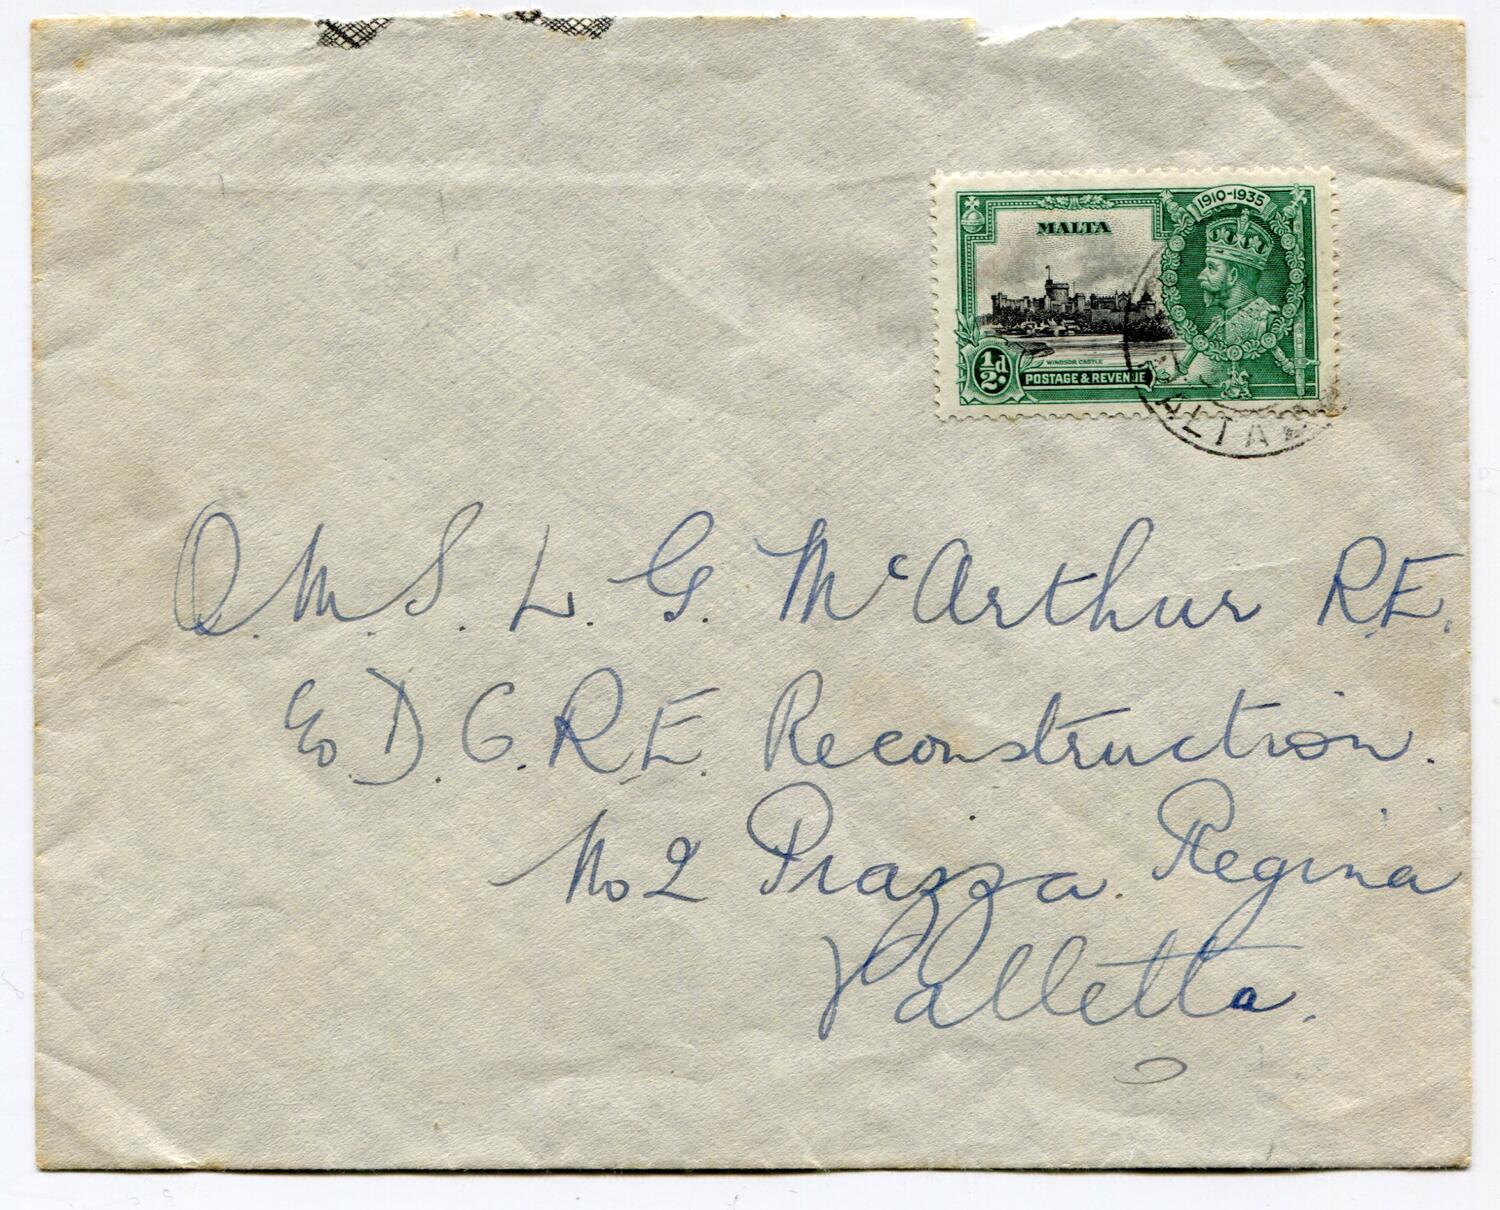 1910-1935
MALTA
WINDSOR CASTLE
½d.
POSTAGE & REVENUE
ALTA
Q.M.S. L. G. McArthur R.E.
C/o D.C.R.E. Reconstruction.
No 2 Piazza Regina
Valletta.